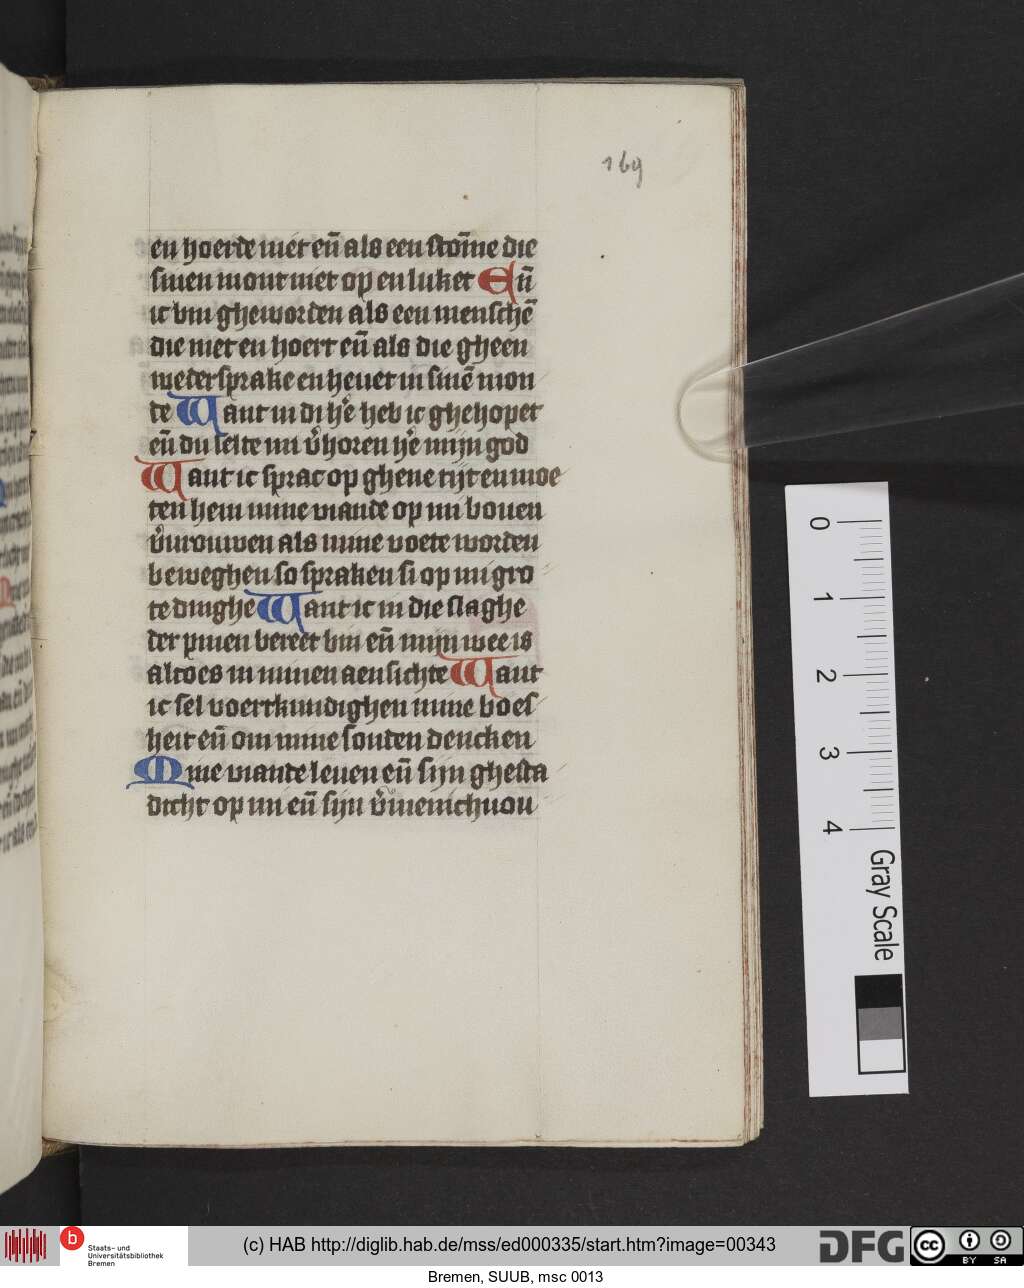 169
en hoerde niet eñ als een stom̄e die
sinen mont niet op en luket Eñ
ic bin gheworden als een menschē
die niet en hoert eñ als die gheen
wedersprake en heuet in sinē mon
te Want in di he᷒ heb ic ghehopet
eñ du selte mi v᷒horen he᷒ mijn god
Want ic sprac op ghene tijt en moe
ten hem mine viande op mi bouen
v᷒urouwen als mine voete worden
beweghen so spraken si op mi gro
te dinghe Want ic in die slaghe
der pinen bereet bin eñ mijn wee is
altoes in minen aensichte Want
ic sel voertkundighen mine boes
heit eñ om mine sonden dencken
Mine viande leuen eñ sijn ghesta
dicht op mi eñ sijn v᷒menichuou
0
1
2
3
4
Gray Scale
b
Staats- und
Universitätsbibliothek
Bremen
(c) HAB http://diglib.hab.de/mss/ed000335/start.htm?image=00343
DFG
cc
BY SA
Bremen, SUUB, msc 0013